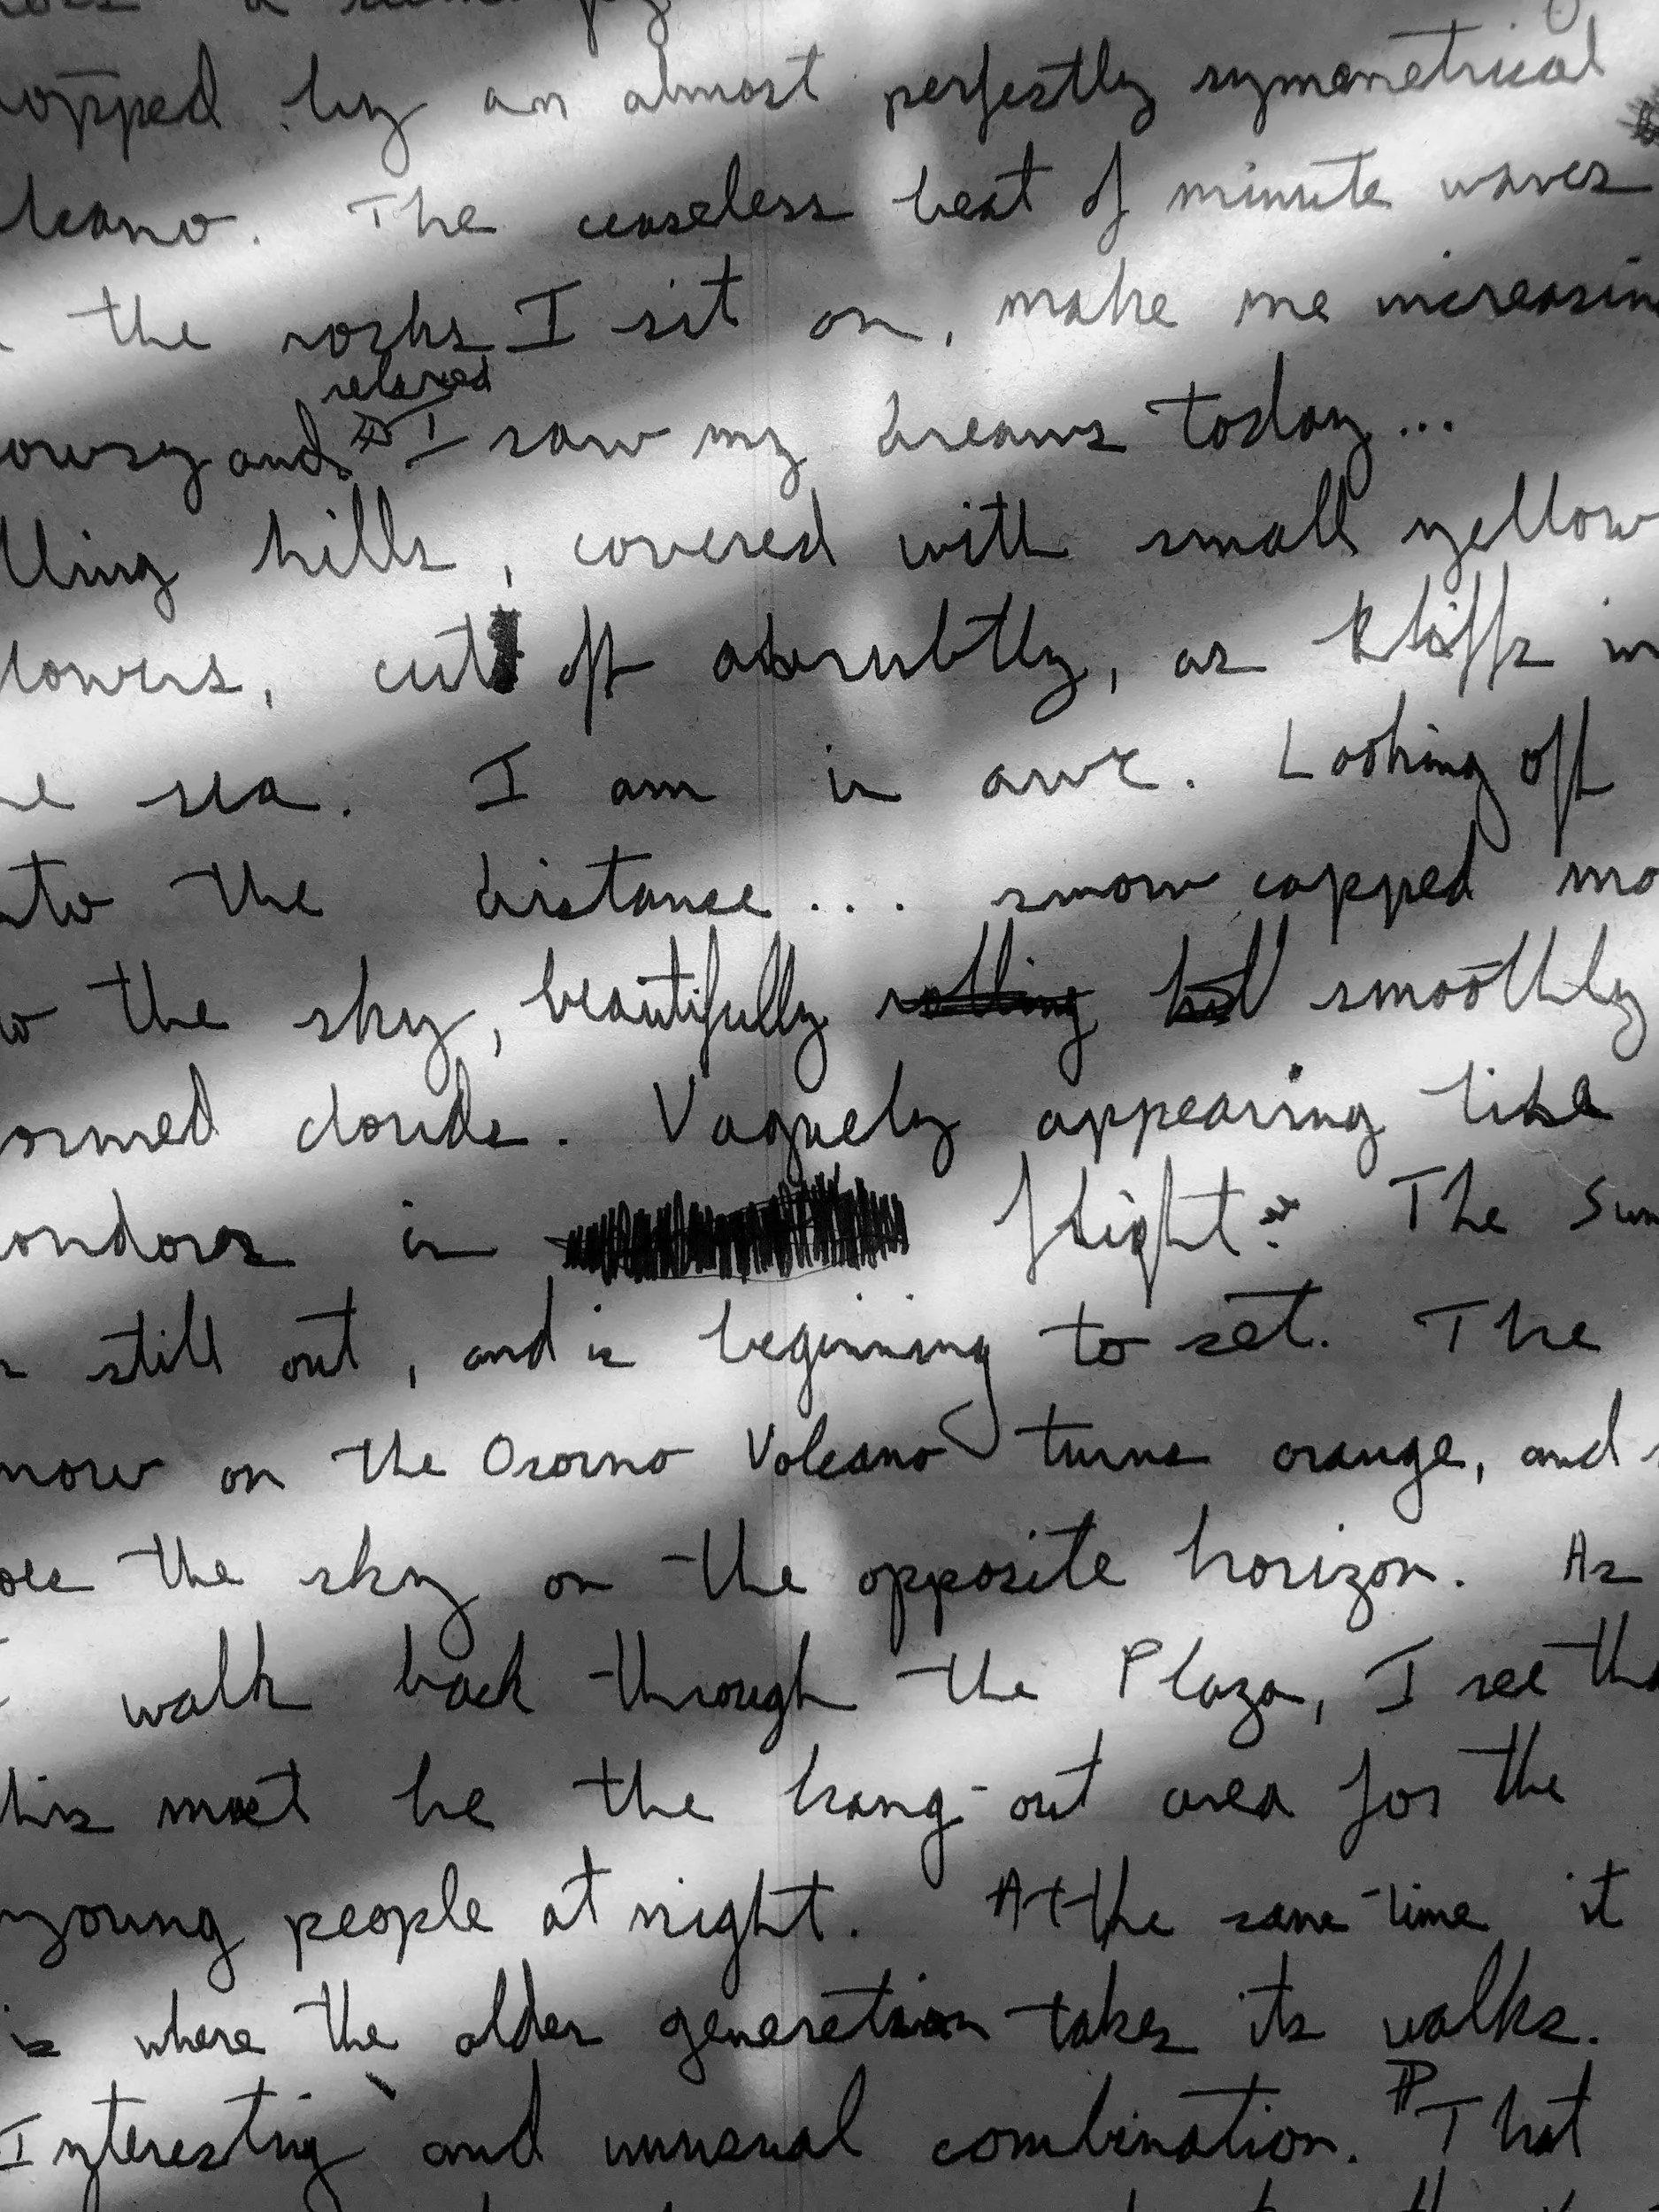 opped by an almost perfectly symmetrical
lcano. The ceaseless beat of minute waves
the rocks I sit on, make me increasin
relaxed
owsy and I saw my dreams today...
lling hills, covered with small yellow
lowers, cut off abrubtly, as kliffs in
e sea. I am in awe. Looking off
nto the distance... snow capped mo
o the sky, beautifully rolling hil smoothly
ormed clouds. Vaguely appearing like
ondores in flight. The Sun
still out, and is beginning to set. The
now on the Osorno Volcano turns orange, and
oes the sky on the opposite horizon. As
I walk back through the Plaza, I see tha
his must be the hang-out area for the
young people at night. At the same time it
is where the older generation takes its walks.
Interesting and unusual combination. That